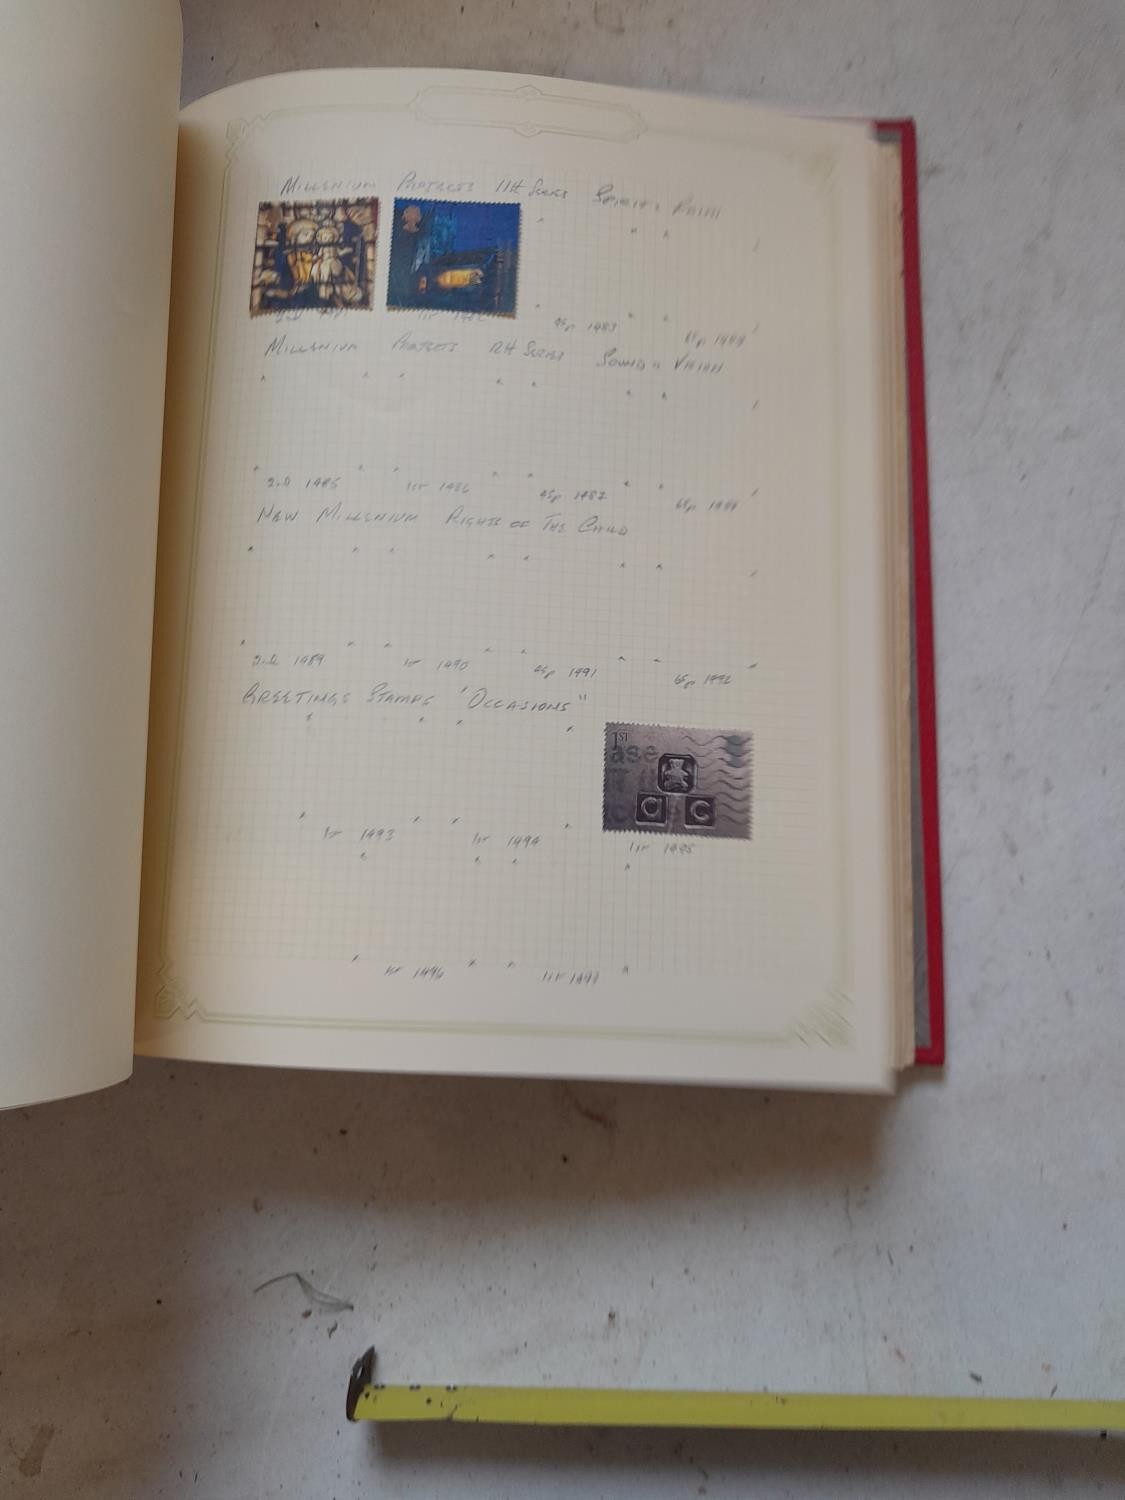 MILLENIUM PROJECTS 11TH SERIES SPIRIT & FAITH
1ST 1482 45p 1483 65p 1484
MILLENIUM PROJECTS 12TH SERIES SOUND & VISION
2nd 1485 1ST 1486 45p 1487 65p 1488
NEW MILLENIUM RIGHTS OF THE CHILD
2nd 1489 1ST 1490 45p 1491 65p 1492
GREETINGS STAMPS "OCCASIONS"
1ST
ase
a c
1ST 1493 1ST 1494 1ST 1495
1ST 1496 1ST 1497